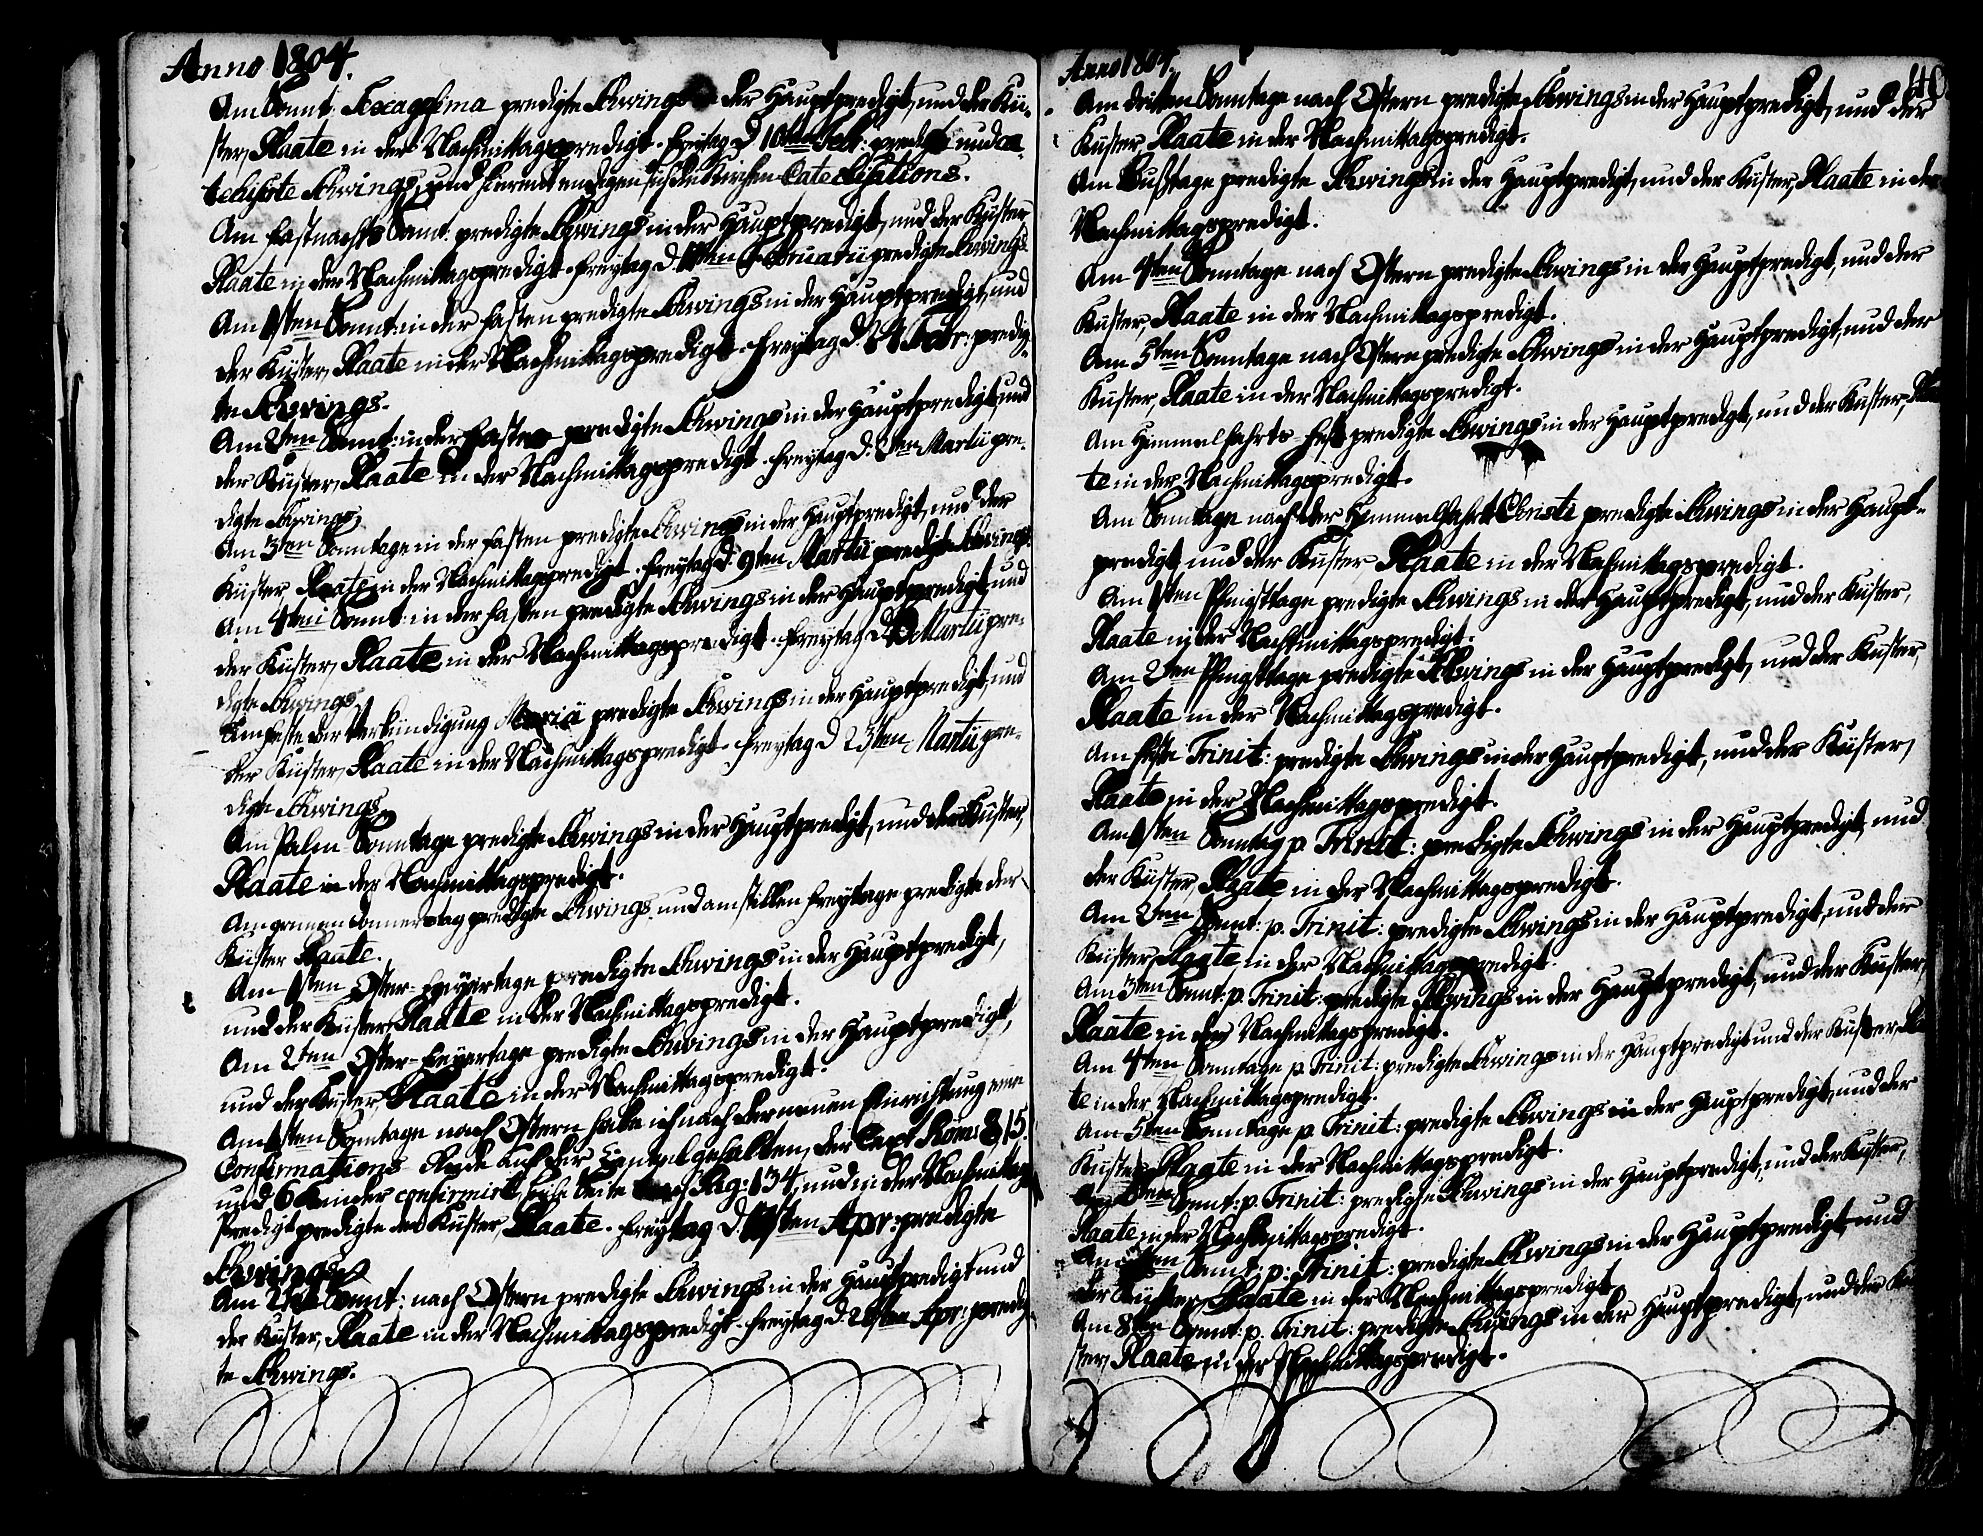 Anno 1804.
Am Sonnt: Sexagesima predigte Schwings in der Hauptpredigt, und der Kü-
ster, Plaate in der Nachmittagspredigt. Freytag d 10ten Febr: predigte und ca-
techisirte Schwings, und hiermit endigen sich die Kirchen-Catechisations.
Am Fastnachts Sonnt. predigte Schwings in der Hauptpredigt, und der Küster
Plaate in der Nachmittagspredigt. Freytag d. 17ten Februarii predigte Schwings
Am 1sten Sonnt: in der Fasten predigte Schwings in der Hauptpredigt, und
der Küster, Plaate in der Nachmittagspredigt. Freytag d. 24 Febr: predig-
te Schwings.
Am 2ten Sonnt: in der Fasten predigte Schwings in der Hauptpredigt, und
der Küster, Plaate in der Nachmittagspredigt. Freytag d. 2ten Martii pre-
digte Schwings,
Am 3ten Sonntage in der Fasten predigte Schwings in der Hauptpredigt, und der
Küster, Plaate in der Nachmittagspredigt. Freytag d. 9ten Martii predigte Schwings.
Am 4ten Sonnt: in der Fasten predigte Schwings in der Hauptpredigt, und
der Küster, Plaate in der Nachmittagspredigt. Freytag d. Martii pre-
digte Schwings
Am Feste der Verkündigung Mariä predigte Schwings in der Hauptpredigt, und
der Küster, Plaate in der Nachmittagspredigt. Freytag d 23sten Martii pre-
digte Schwings
Am Palm-Sonntage predigte Schwings in der Hauptpredigt, und der Küster,
Plaate in der Nachmittagspredigt.
Am grünen Donnerstag predigte Schwings, und am stillen Freytage predigte der
Küster Plaate.
Am 1sten Oster-Feyertage predigte Schwings in der Hauptpredigt,
und der Küster, Plaate in der Nachmittagspredigt.
Am 2ten Oster-Feyertage predigte Schwings in der Hauptpredigt,
und der Küster, Plaate in der Nachmittagspredigt.
Am 1sten Sonntage nach Ostern habe ich nach der neuen Einrichtung eine
Confirmations-Rede auf der Cantzel gehalten, der Text Röm: 8,15.
und 6 Kinder confirmirt, siehe Seite Pag: 134, und in der Nachmittags
Predigt predigte der Küster, Plaate. Freytag d. Apr: predigte
Schwings
Am 2ten Sonnt: nach Ostern predigte Schwings in der Hauptpredigt und
der Küster, Plaate in der Nachmittagspredigt. Freytag d. Apr: predig-
te Schwings.
Anno 1804.
40
Am dritten Sonntage nach Ostern predigte Schwings in der Hauptpredigt, und der
Küster, Plaate in der Nachmittagspredigt.
Am Bußtage predigte Schwings in der Hauptpredigt, und der Küster, Plaate in der
Nachmittagspredigt.
Am 4ten Sonntage nach Ostern predigte Schwings in der Hauptpredigt, und der
Küster, Plaate in der Nachmittagspredigt.
Am 5ten Sonntage nach Ostern predigte Schwings in der Hauptpredigt, und der
Küster, Plaate in der Nachmittagspredigt.
Am Himmelfahrts-Fest predigte Schwings in der Hauptpredigt, und der Küster, Plaa
te in der Nachmittagspredigt.
Am Sonntage nach der Himmelfahrt Christi predigte Schwings in der Haupt-
predigt, und der Küster, Plaate in der Nachmittagspredigt.
Am 1sten Pfingsttage predigte Schwings in der Hauptpredigt, und der Küster,
Plaate in der Nachmittagspredigt.
Am 2ten Pfingsttage predigte Schwings in der Hauptpredigt, und der Küster,
Plaate in der Nachmittagspredigt.
Am Feste Trinit: predigte Schwings in der Hauptpredigt, und der Küster,
Plaate in der Nachmittagspredigt.
Am 1sten Sonntag p Trinit: predigte Schwings in der Hauptpredigt, und
der Küster, Plaate in der Nachmittagspredigt.
Am 2ten Sonnt: p. Trinit: predigte Schwings in der Hauptpredigt, und der
Küster, Plaate, in der Nachmittagspredigt.
Am 3ten Sonnt: p. Trinit: predigte Schwings in der Hauptpredigt, und der Küster,
Plaate in der Nachmittagspredigt.
Am 4ten Sonntage p Trinit: predigte Schwings in der Hauptpredigt und der Küster, Plaa
te in der Nachmittagspredigt.
Am 5ten Sonntage p. Trinit: predigte Schwings in der Hauptpredigt, und der
Küster, Plaate in der Nachmittagspredigt.
Am 6ten Sonnt: p. Trinit: predigte Schwings in der Hauptpredigt, und der Küster,
Plaate in der Nachmittagspredigt.
Am 7ten Sonnt: p: Trinit: predigte Schwings in der Hauptpredigt und
der Küster, Plaate in der Nachmittagspredigt.
Am 8ten Sonnt: p. Trinit: predigte Schwings in der Hauptpredigt, und der Kü
ster, Plaate in der Nachmittagspredigt.